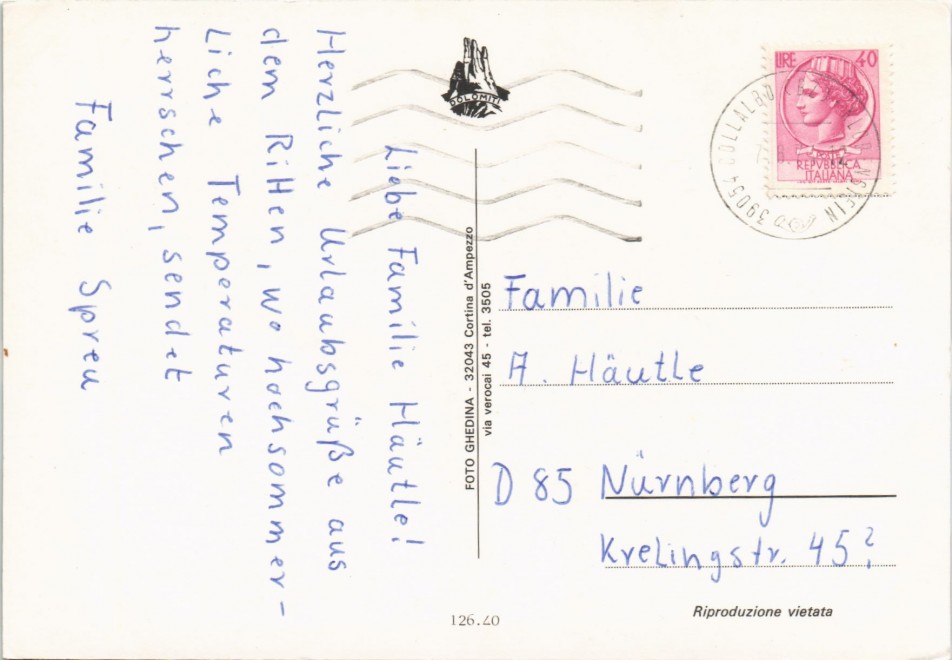 Liebe Familie Häutle!
Herzliche Urlaubsgrüße aus
dem Ritten, wo hochsommer-
liche Temperaturen
herrschen, sendet
Familie Spreu
DOLOMITI
FOTO GHEDINA - 32043 Cortina d'Ampezzo
via verocai 45 - tel. 3505
LIRE 40
POSTE
REPVBBLICA
ITALIANA
39054 COLLALBO
Familie
A. Häutle
D 85 Nürnberg
Krelingstr. 45?
Riproduzione vietata
126.40